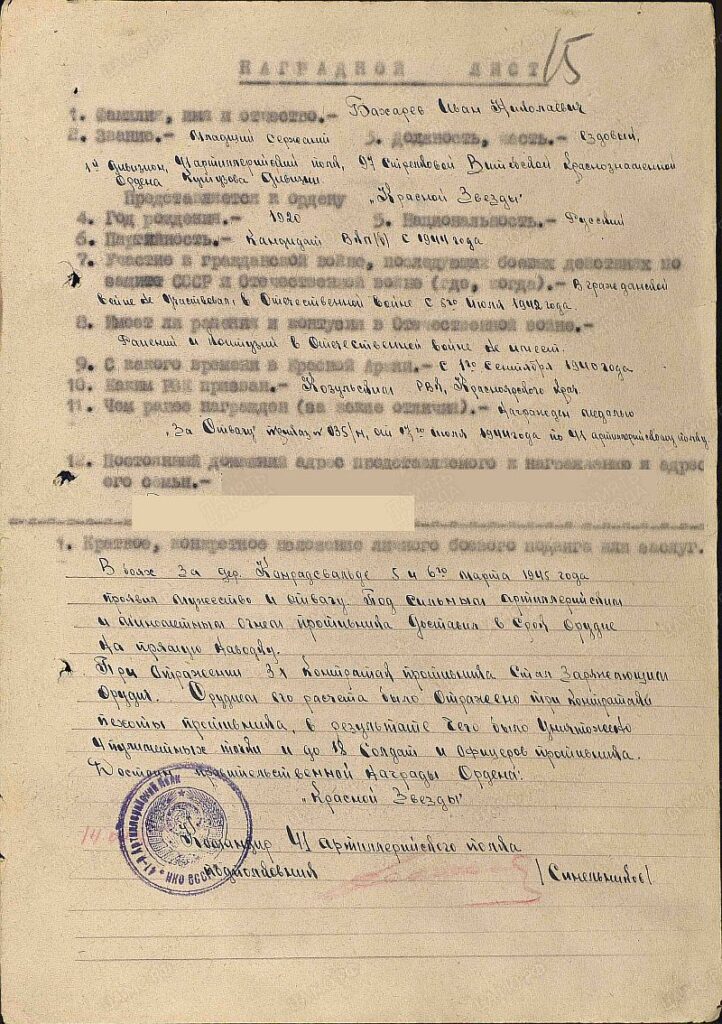 НАГРАДНОЙ ЛИСТ 15
1. Фамилия, имя и отчество.- Бахарев Иван Николаевич
2. Звание.- Младший Сержант 3. Должность, часть.- ездовый,
1й дивизион, 41 артиллерийский полк, 97 стрелковой Витебской Краснознаменной
Ордена Кутузова Дивизии
Представляется к ордену „Красной Звезды"
4. Год рождения.- 1920 5. Национальность.- Русский
6. Партийность.- Кандидат ВКП(б) с 1944 года
7. Участие в гражданской войне, последующих боевых действиях по
защите СССР и Отечественной войне (где, когда).- В гражданской
войне не участвовал, в Отечественной войне с 5го Июля 1942 года.
8. Имеет ли ранения и контузии в Отечественной войне.-
Ранений и контузий в Отечественной войне не имеет.
9. С какого времени в Красной Армии.- с 1го Сентября 1940 года
10. Каким РВК призван.- Козульским РВК, Красноярского края
11. Чем ранее награжден (за какие отличия).- Награжден медалью
„За Отвагу" приказ № 035/н, от 17го июля 1944 года по 41 артиллерийскому полку
12. Постоянный домашний адрес представляемого к награждению и адрес
его семьи.-
1. Краткое, конкретное изложение личного боевого подвига или заслуг.
В боях за дер. Конрадсвальде 5 и 6го марта 1945 года
проявил мужество и отвагу. Под сильным артиллерийским
и минометным огнем противника доставил в срок орудие
на прямую наводку.
При отражении 3х контратак противника стал заряжающим
орудия. Орудием его расчета было отражено три контратаки
пехоты противника, в результате чего было уничтожено
4 пулеметных точки и до 18 солдат и офицеров противника.
Достоин правительственной награды Ордена:
„Красной Звезды"
Командир 41 артиллерийского полка
Подполковник /Синельников/
41-й Артиллерийский полк * НКО СССР *